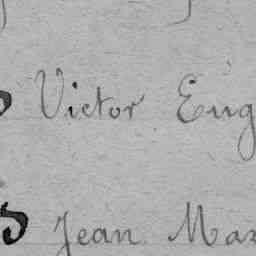 Victor Eug
Jean Max